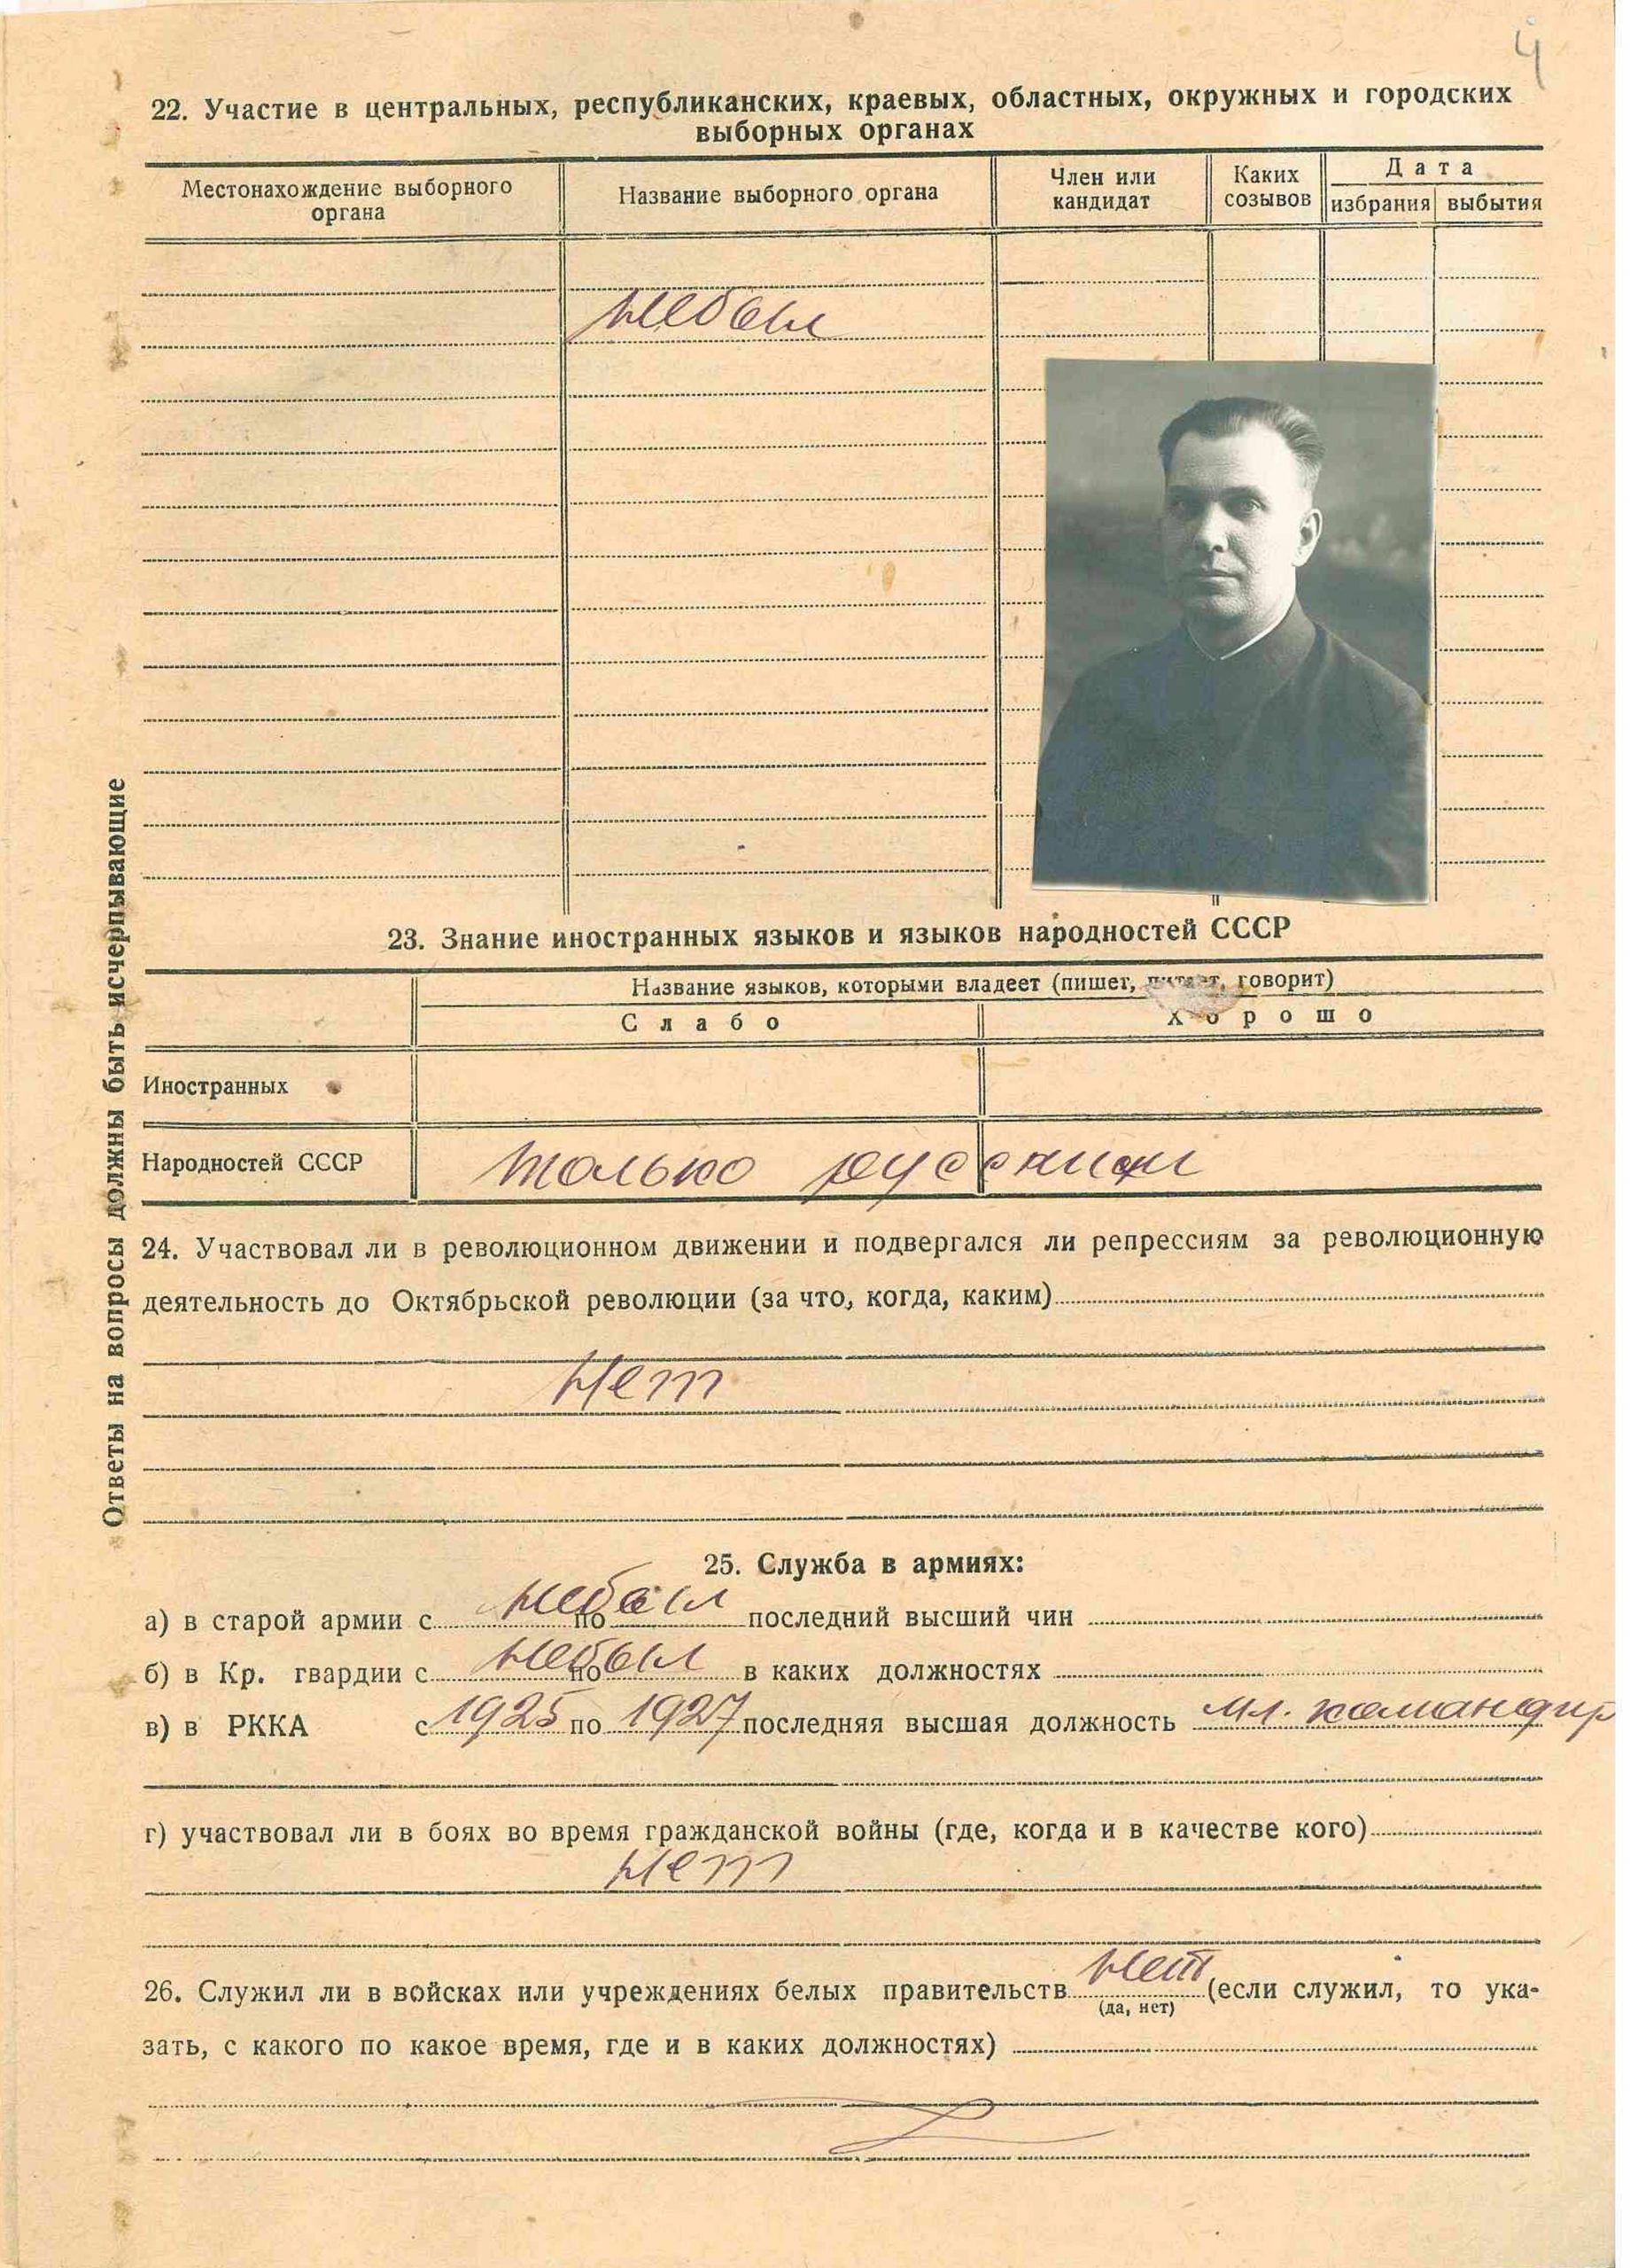 4
22. Участие в центральных, республиканских, краевых, областных, окружных и городских
выборных органах
Местонахождение выборного органа
Название выборного органа
Член или кандидат
Каких созывов
Дата
избрания
выбытия
небыл
23. Знание иностранных языков и языков народностей СССР
Название языков, которыми владеет (пишет, читает, говорит)
Слабо
Хорошо
Иностранных
Народностей СССР только русский
24. Участвовал ли в революционном движении и подвергался ли репрессиям за революционную
деятельность до Октябрьской революции (за что, когда, каким)
Нет
25. Служба в армиях:
а) в старой армии с небыл по последний высший чин
б) в Кр. гвардии с небыл по в каких должностях
в) в РККА с 1925 по 1927 последняя высшая должность мл. командир
г) участвовал ли в боях во время гражданской войны (где, когда и в качестве кого)
нет
26. Служил ли в войсках или учреждениях белых правительств нет (если служил, то ука-
(да, нет)
зать, с какого по какое время, где и в каких должностях)
Ответы на вопросы должны быть исчерпывающие